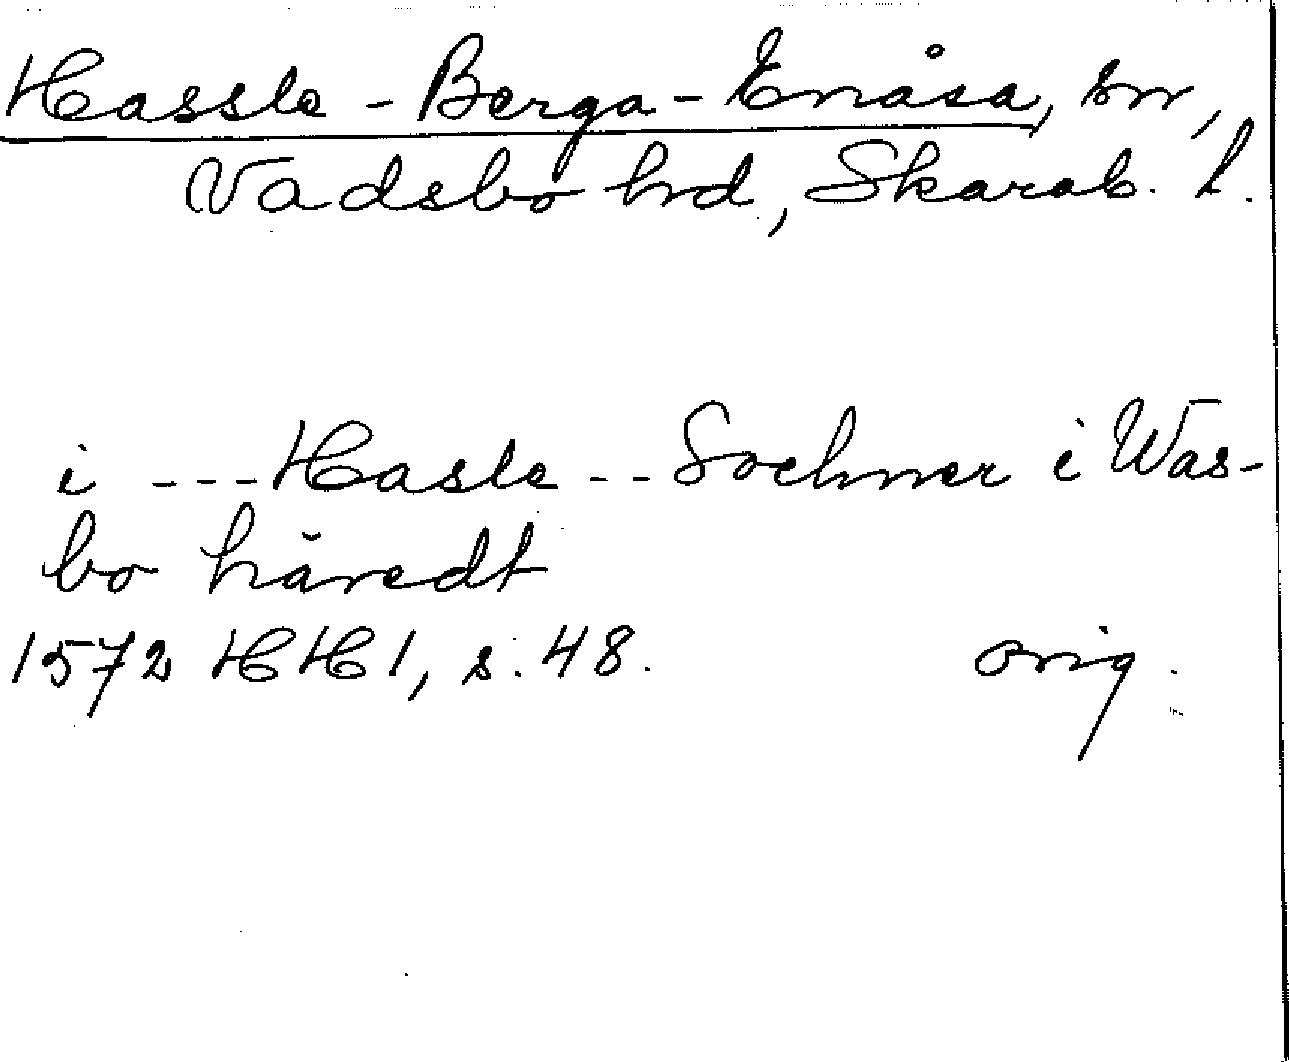 Hassle-Berga-Enåsa, sn,
Vadsbo hd, Skarab. l.
i ---Hasle--Sochner i Was-
bo häredt
1572 HH1, s. 48. orig.